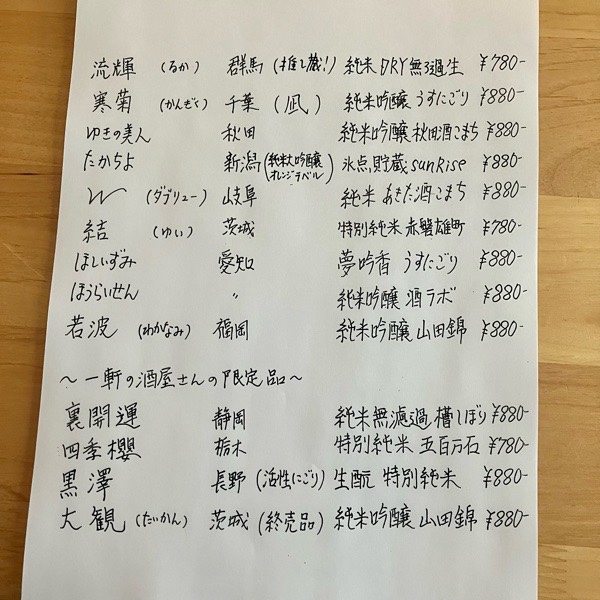 流輝 (るか) 群馬 (推し蔵!) 純米 DRY 無ろ過生 ¥780-
寒菊 (かんぎく) 千葉 (凪) 純米吟醸 うすにごり ¥880-
ゆきの美人 秋田 純米吟醸 秋田酒こまち ¥880-
たかちよ 新潟 (純米大吟醸 オレンジラベル) 氷点貯蔵 sunRise ¥880-
W (ダブリュー) 岐阜 純米 あきた酒こまち ¥880-
結 (ゆい) 茨城 特別純米 赤磐雄町 ¥780-
ほしいずみ 愛知 夢吟香 うすにごり ¥880-
ほうらいせん 〃 純米吟醸 酒ラボ ¥880-
若波 (わかなみ) 福岡 純米吟醸 山田錦 ¥880-
〜一軒の酒屋さんの限定品〜
裏開運 静岡 純米無濾過 槽しぼり ¥880-
四季櫻 栃木 特別純米 五百万石 ¥780-
黒澤 長野 (活性にごり) 生酛 特別純米 ¥880-
大観 (たいかん) 茨城 (終売品) 純米吟醸 山田錦 ¥880-